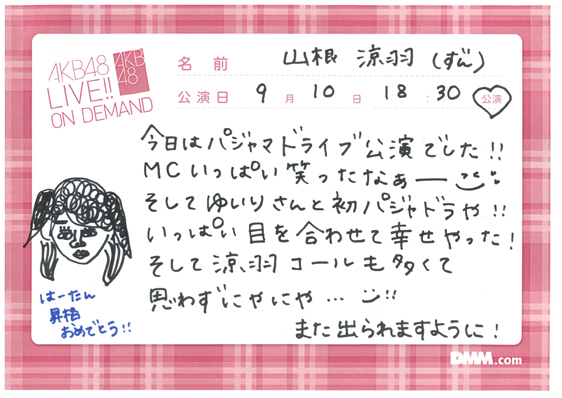 AKB48
LIVE!!
ON DEMAND
AKB
48
名前 山根 涼羽 (ずん)
公演日 9月10日 18:30 公演
今日はパジャマドライブ公演でした!!
MCいっぱい笑ったなぁー
そしてゆいりさんと初パジャドラや!!
いっぱい目を合わせて幸せやった!
そして涼羽コールも多くて
思わずにやにや…
また出られますように!
はーたん
昇格
おめでとう!!
DMM.com